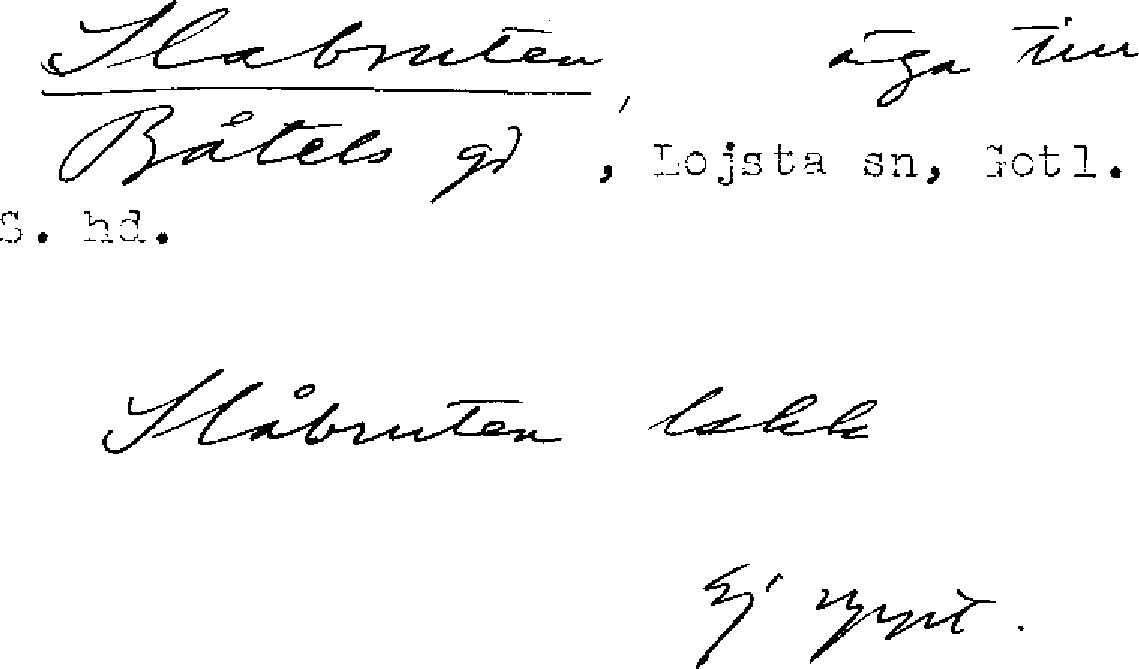 Slabruten, äga till
Båtels gd, Lojsta sn, Gotl.
S. hd.
Slåbruten lskk
Ej uppt.